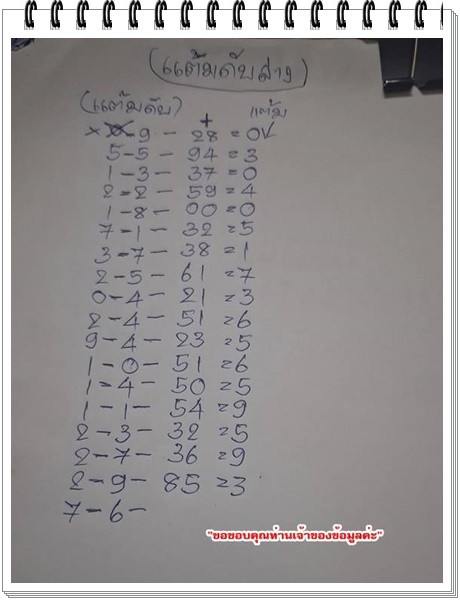 (แต้มดับล่าง)
(แต้มดับ) + แต้ม
× 0-9 - 28 = 0✓
5-5 - 94 = 3
1-3 - 37 = 0
2-2 - 59 = 4
1-8 - 00 = 0
7-1 - 32 = 5
3-7 - 38 = 1
2-5 - 61 = 7
0-4 - 21 = 3
2-4 - 51 = 6
9-4 - 23 = 5
1-0 - 51 = 6
1-4 - 50 = 5
1-1 - 54 = 9
2-3 - 32 = 5
2-7 - 36 = 9
2-9 - 85 = 3
7-6 -
"ขอขอบคุณท่านเจ้าของข้อมูลค่ะ"